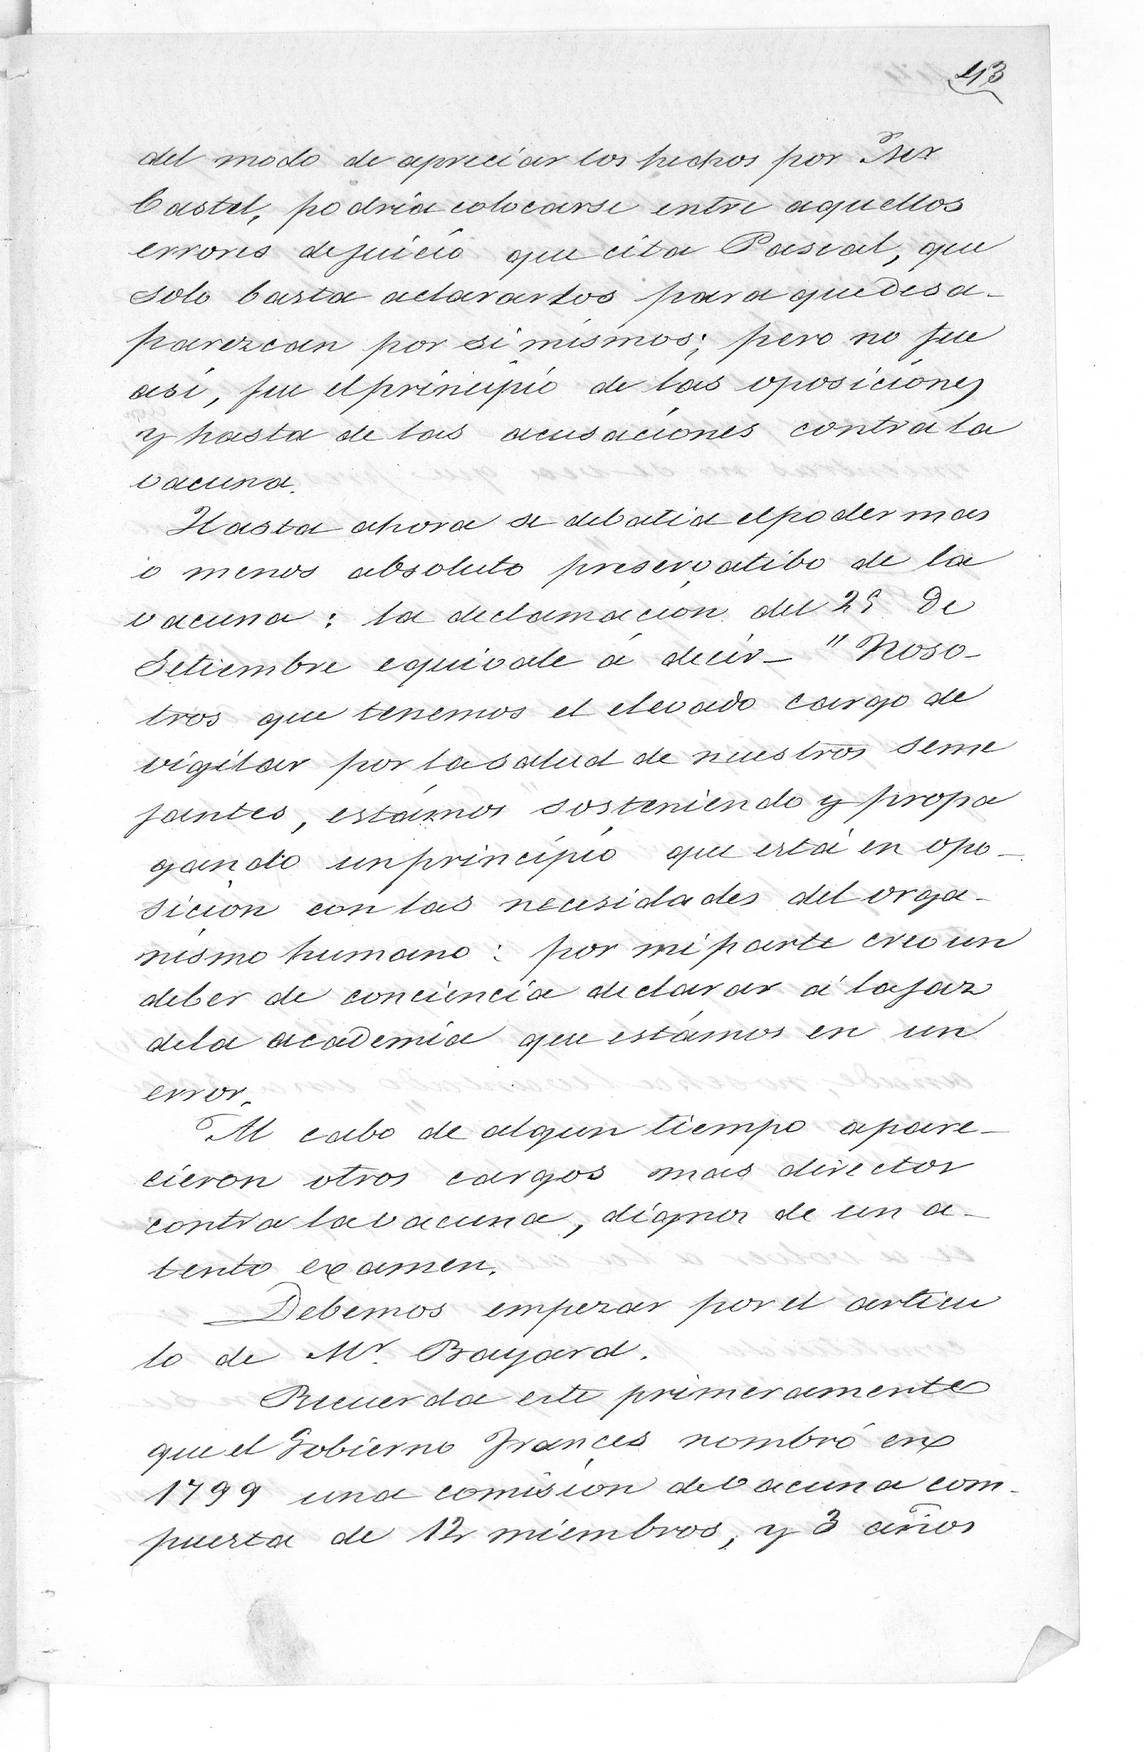 43
del modo de apreciar los hechos por Ber
Castel, podría colocarse entre aquellos
errores de juicio que cita Pascal, que
solo basta aclararlos para que desa-
parezcan por si mismos; pero no fue
asi, fue el principio de las oposiciones
y hasta de las acusaciones contra la
vacuna.
Hasta ahora se debatia el poder mas
o menos absoluto preservatibo de la
vacuna: la declamación del 29 De
Setiembre equivale á decir— "Noso-
tros que tenemos el elevado cargo de
vigilar por la salud de nuestros seme
jantes, estámos sosteniendo y propa
gando un principio que está en opo-
sicion con las necesidades del orga-
nismo humano: por mi parte creo un
deber de conciencia declarar á la faz
dela academia que estámos en un
error."
Al cabo de algun tiempo apare-
cieron otros cargos mas director
contra la vacuna, dignos de un a-
tento examen.
Debemos empezar por el articu
lo de Mr. Bayard.
Recuerda este primeramente
que el Gobierno Frances nombró en
1799 una comision de vacuna com-
puesta de 12 miembros, y 3 años